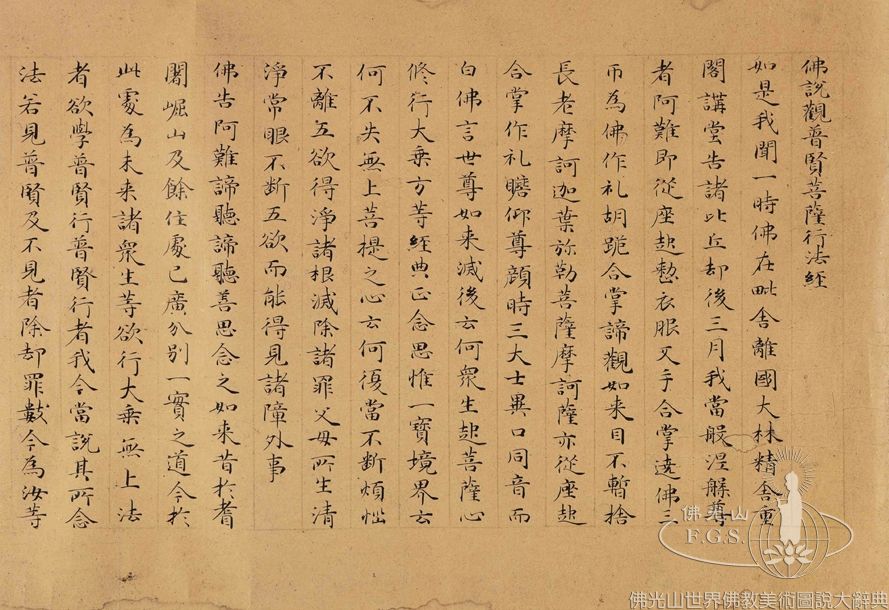 佛說觀普賢菩薩行法經
如是我聞一時佛在毗舍離國大林精舍重
閣講堂告諸比丘却後三月我當般涅槃尊
者阿難即從座起整衣服叉手合掌遶佛三
帀為佛作礼胡跪合掌諦觀如来目不暫捨
長老摩訶迦葉弥勒菩薩摩訶薩亦從座起
合掌作礼瞻仰尊顔時三大士異口同音而
白佛言世尊如来滅後云何衆生起菩薩心
修行大乗方等經典正念思惟一實境界云
何不失無上菩提之心云何復當不断煩惱
不離五欲得淨諸根滅除諸罪父母所生清
淨常眼不断五欲而能得見諸障外事
佛告阿難諦聽諦聽善思念之如来昔於耆
闍崛山及餘住處已廣分別一實之道今於
此處為未来諸衆生等欲行大乗無上法
者欲學普賢行普賢行者我今當說其所念
法若見普賢及不見者除却罪數今為汝等
佛光山
F.G.S.
佛光山世界佛教美術圖說大辭典